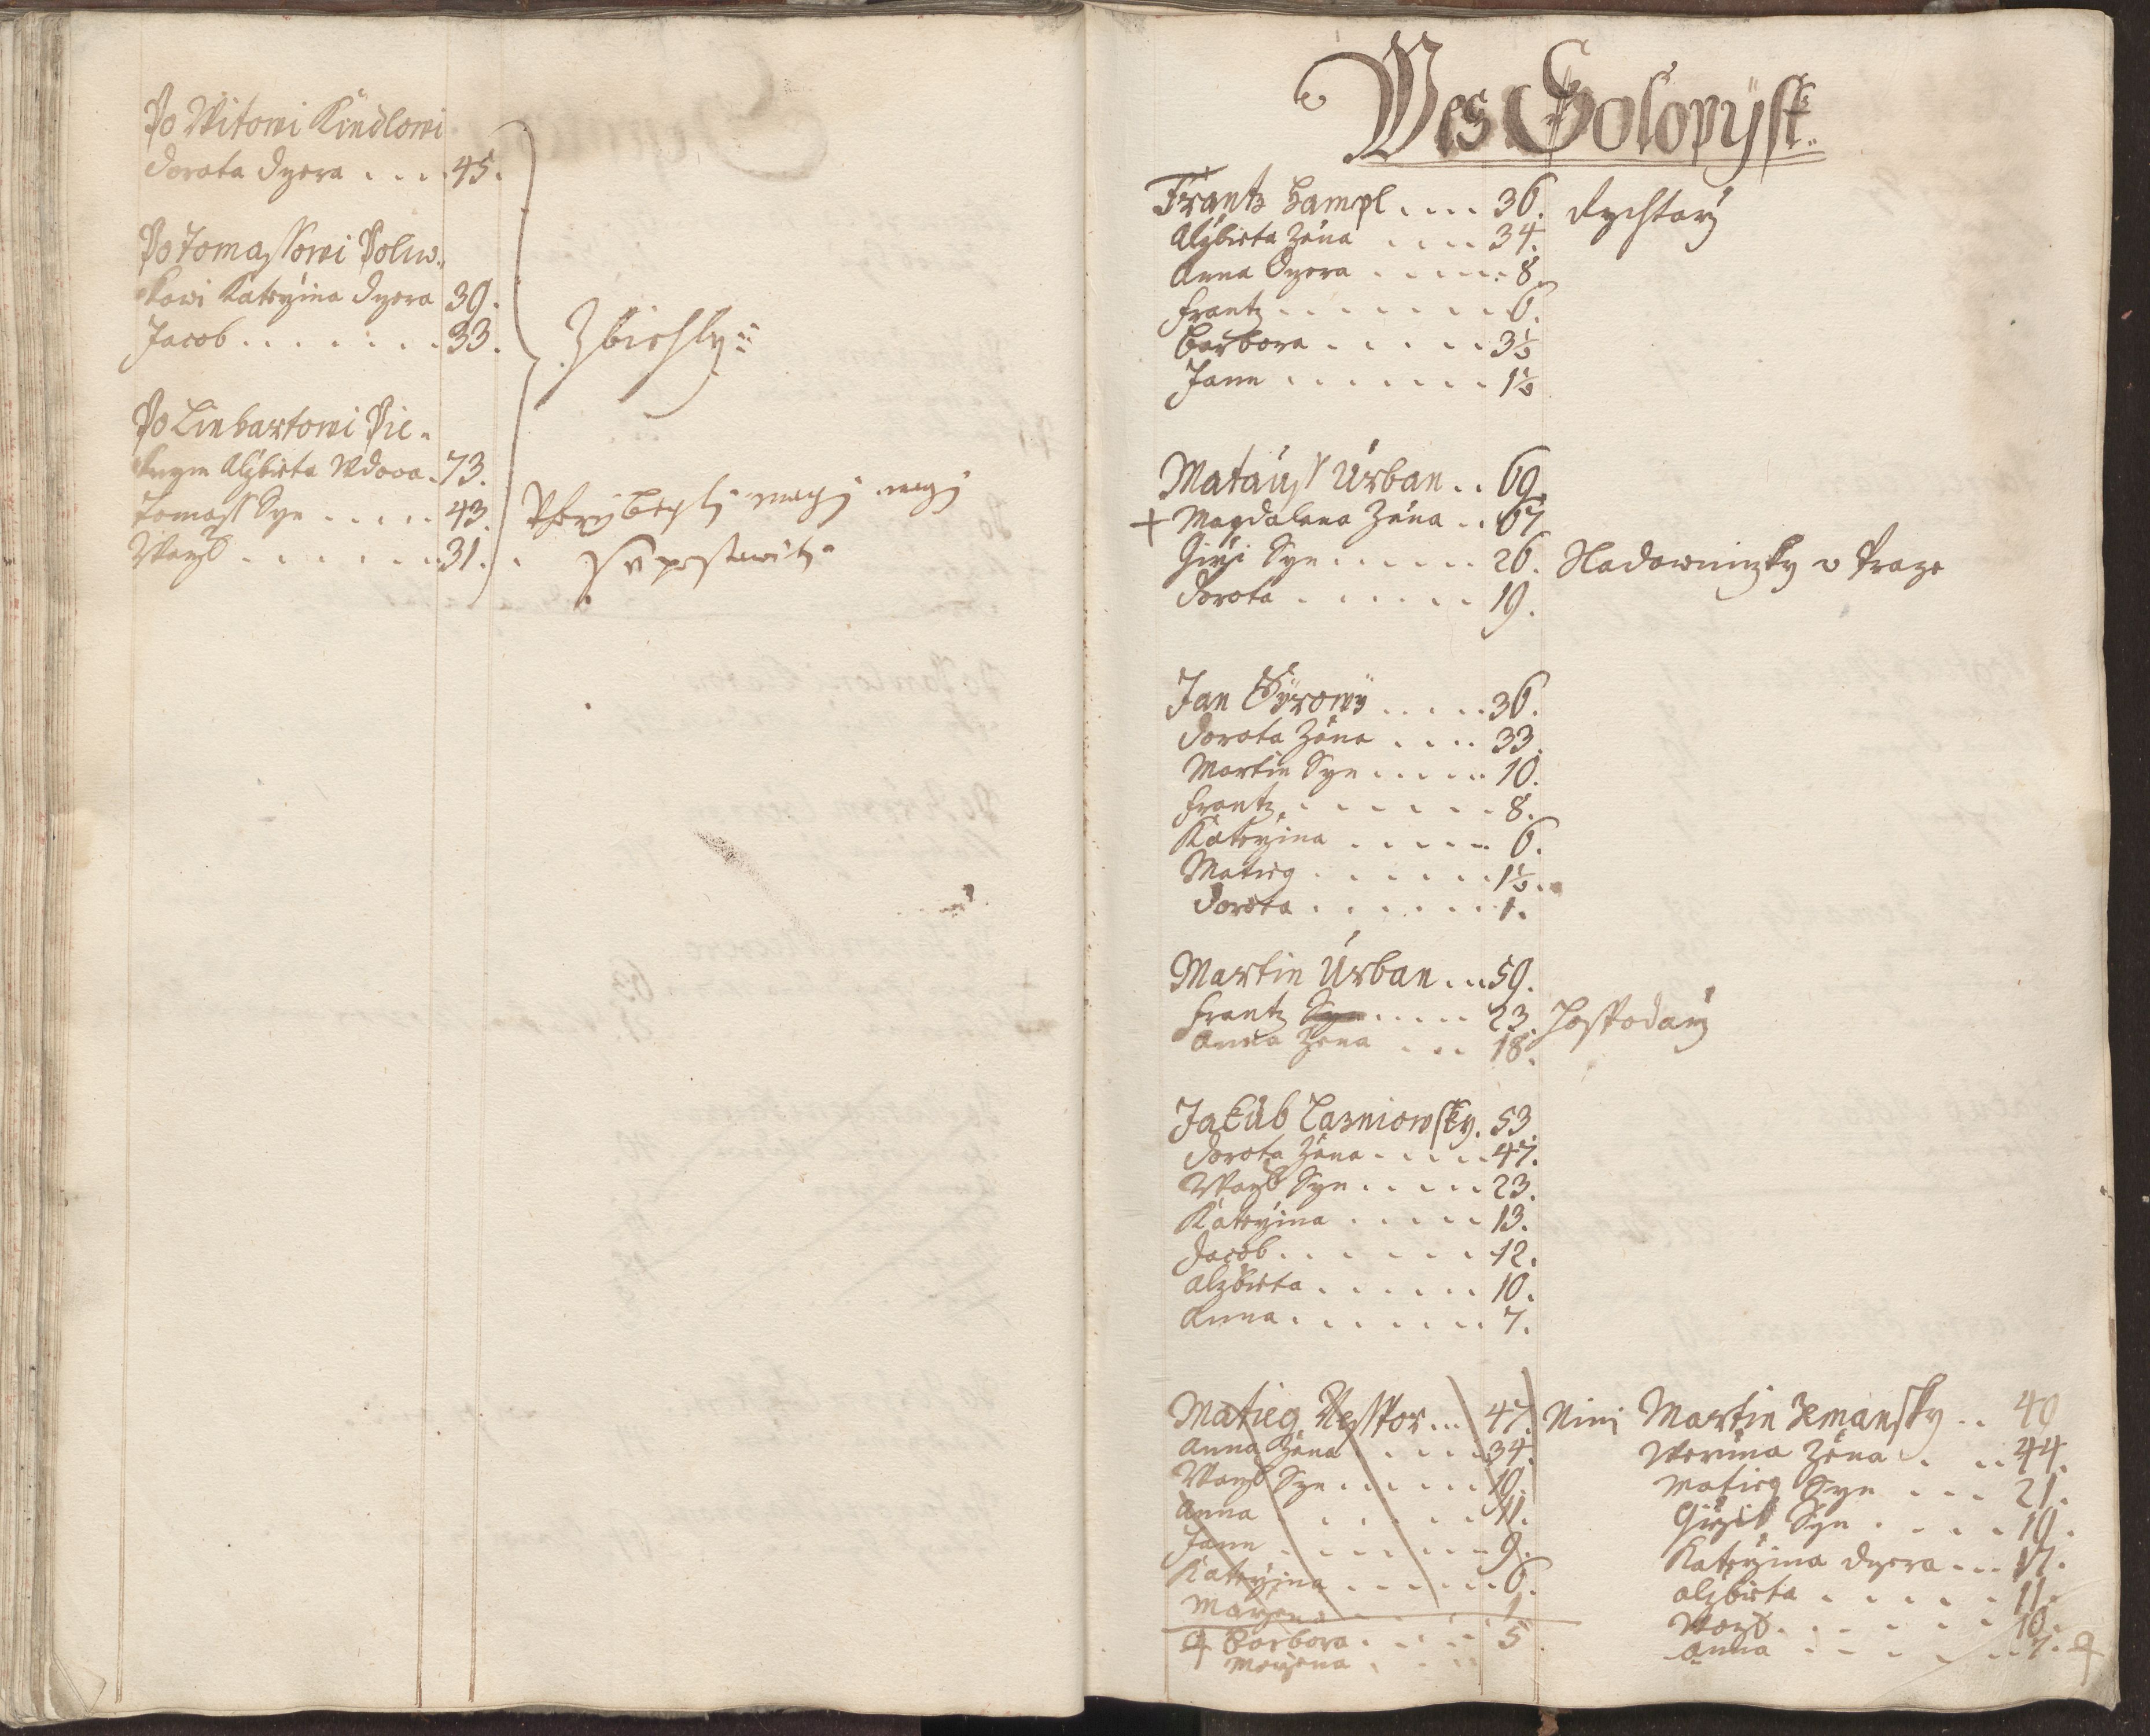 Po Witowi Kindlowi
Dorota Dcera . . . 45.
Po Tomassowi Poliw„
kowi Kateřina Dcera 39.
Jacob . . . . . . . 33.
Zbiehly
Po Linhartowi Pie„
knym Alžbieta Wdova . 73.
Tomass Syn . . . . . 43.
Waczl . . . . . . 31.
magj magj
se postawit
Wes Holopysk
Frantz Hampl . . . . 36. Rychtarž
Alžbieta Žena . . . . 34.
Anna Dcera . . . . . 8.
Frantz . . . . . . . 6.
Barbora . . . . . 3½
Jann . . . . . . . 1½
Matauss Urban . . 69.
+ Magdalena Žena . . 67
Giržj Syn . . . . . . 26. Sladowniczky v Praze
Dorota . . . . . . 19.
Jan Syrowy . . . . . 36.
Dorota Žena . . . . 33.
Martin Syn . . . . . 10.
Frantz . . . . . . . 8.
Kateřina . . . . . 6.
Matieg . . . . . . 1½.
Dorota . . . . . . 1.
Martin Urban . . . 59.
Frantz Syn . . . . . 23. Hospodarž
Anna Žena . . . 18.
Jakub Lazniowsky . 53.
Dorota Žena . . . . 47.
Waczl Syn . . . . . 23.
Kateřina . . . . . 13.
Jacob . . . . . . . 12.
Alžbieta . . . . . . 10.
Anna . . . . . . . 7.
Matieg Nesspor . . . 47. Nini Martin Zemansky . . 40
Anna Žena . . . . . 34. Weruna Žena . . . 44.
Waczl Syn . . . . . . 19. Matieg Syn . . . 21.
Anna . . . . . . . 11. Giržik Syn . . . . 19.
Jann . . . . . . . 9. Kateřina Dcera . . . 17.
Kateřina . . . . . . 6. Alžbieta . . . . . . 11.
Maryana . . . . . 1 Waczl . . . . . . . 10.
Barbora . . . . . 5 Anna . . . . . . . 7.
Maryana . . . .